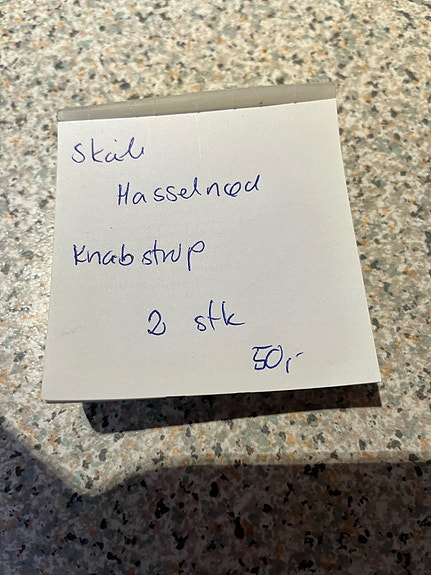 Skål
Hasselnød
Knabstrup
2 stk
50,-